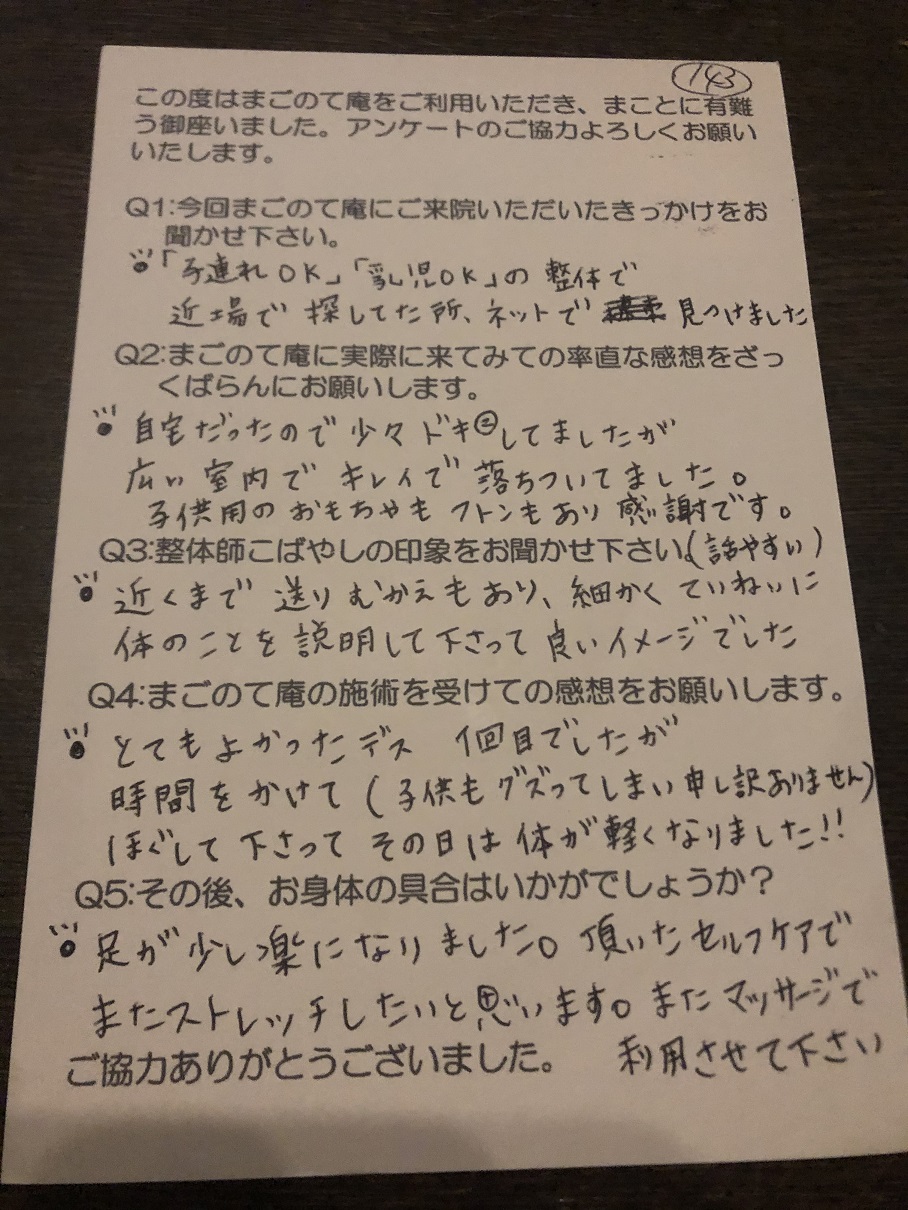 143
この度はまごのて庵をご利用いただき、まことに有難
う御座いました。アンケートのご協力よろしくお願い
いたします。
Q1:今回まごのて庵にご来院いただいたきっかけをお
聞かせ下さい。
「子連れOK」「乳児OK」の整体で
近場で探してた所、ネットで見つけました
Q2:まごのて庵に実際に来てみての率直な感想をざっ
くばらんにお願いします。
自宅だったので少々ドキ②してましたが
広い室内でキレイで落ちついてました。
子供用のおもちゃもフトンもあり感謝です。
Q3:整体師こばやしの印象をお聞かせ下さい(話やすい)
近くまで送りむかえもあり、細かくていねいに
体のことを説明して下さって良いイメージでした
Q4:まごのて庵の施術を受けての感想をお願いします。
とてもよかったデス 1回目でしたが
時間をかけて(子供もグズってしまい申し訳ありません)
ほぐして下さってその日は体が軽くなりました!!
Q5:その後、お身体の具合はいかがでしょうか?
足が少し楽になりました。頂いたセルフケアで
またストレッチしたいと思います。またマッサージで
ご協力ありがとうございました。 利用させて下さい